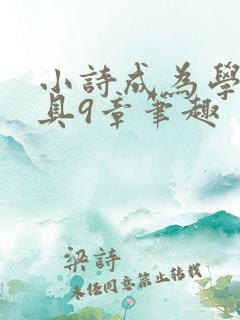 小詩成為學
具9章筆趣
梁詩
未经同意禁止转载